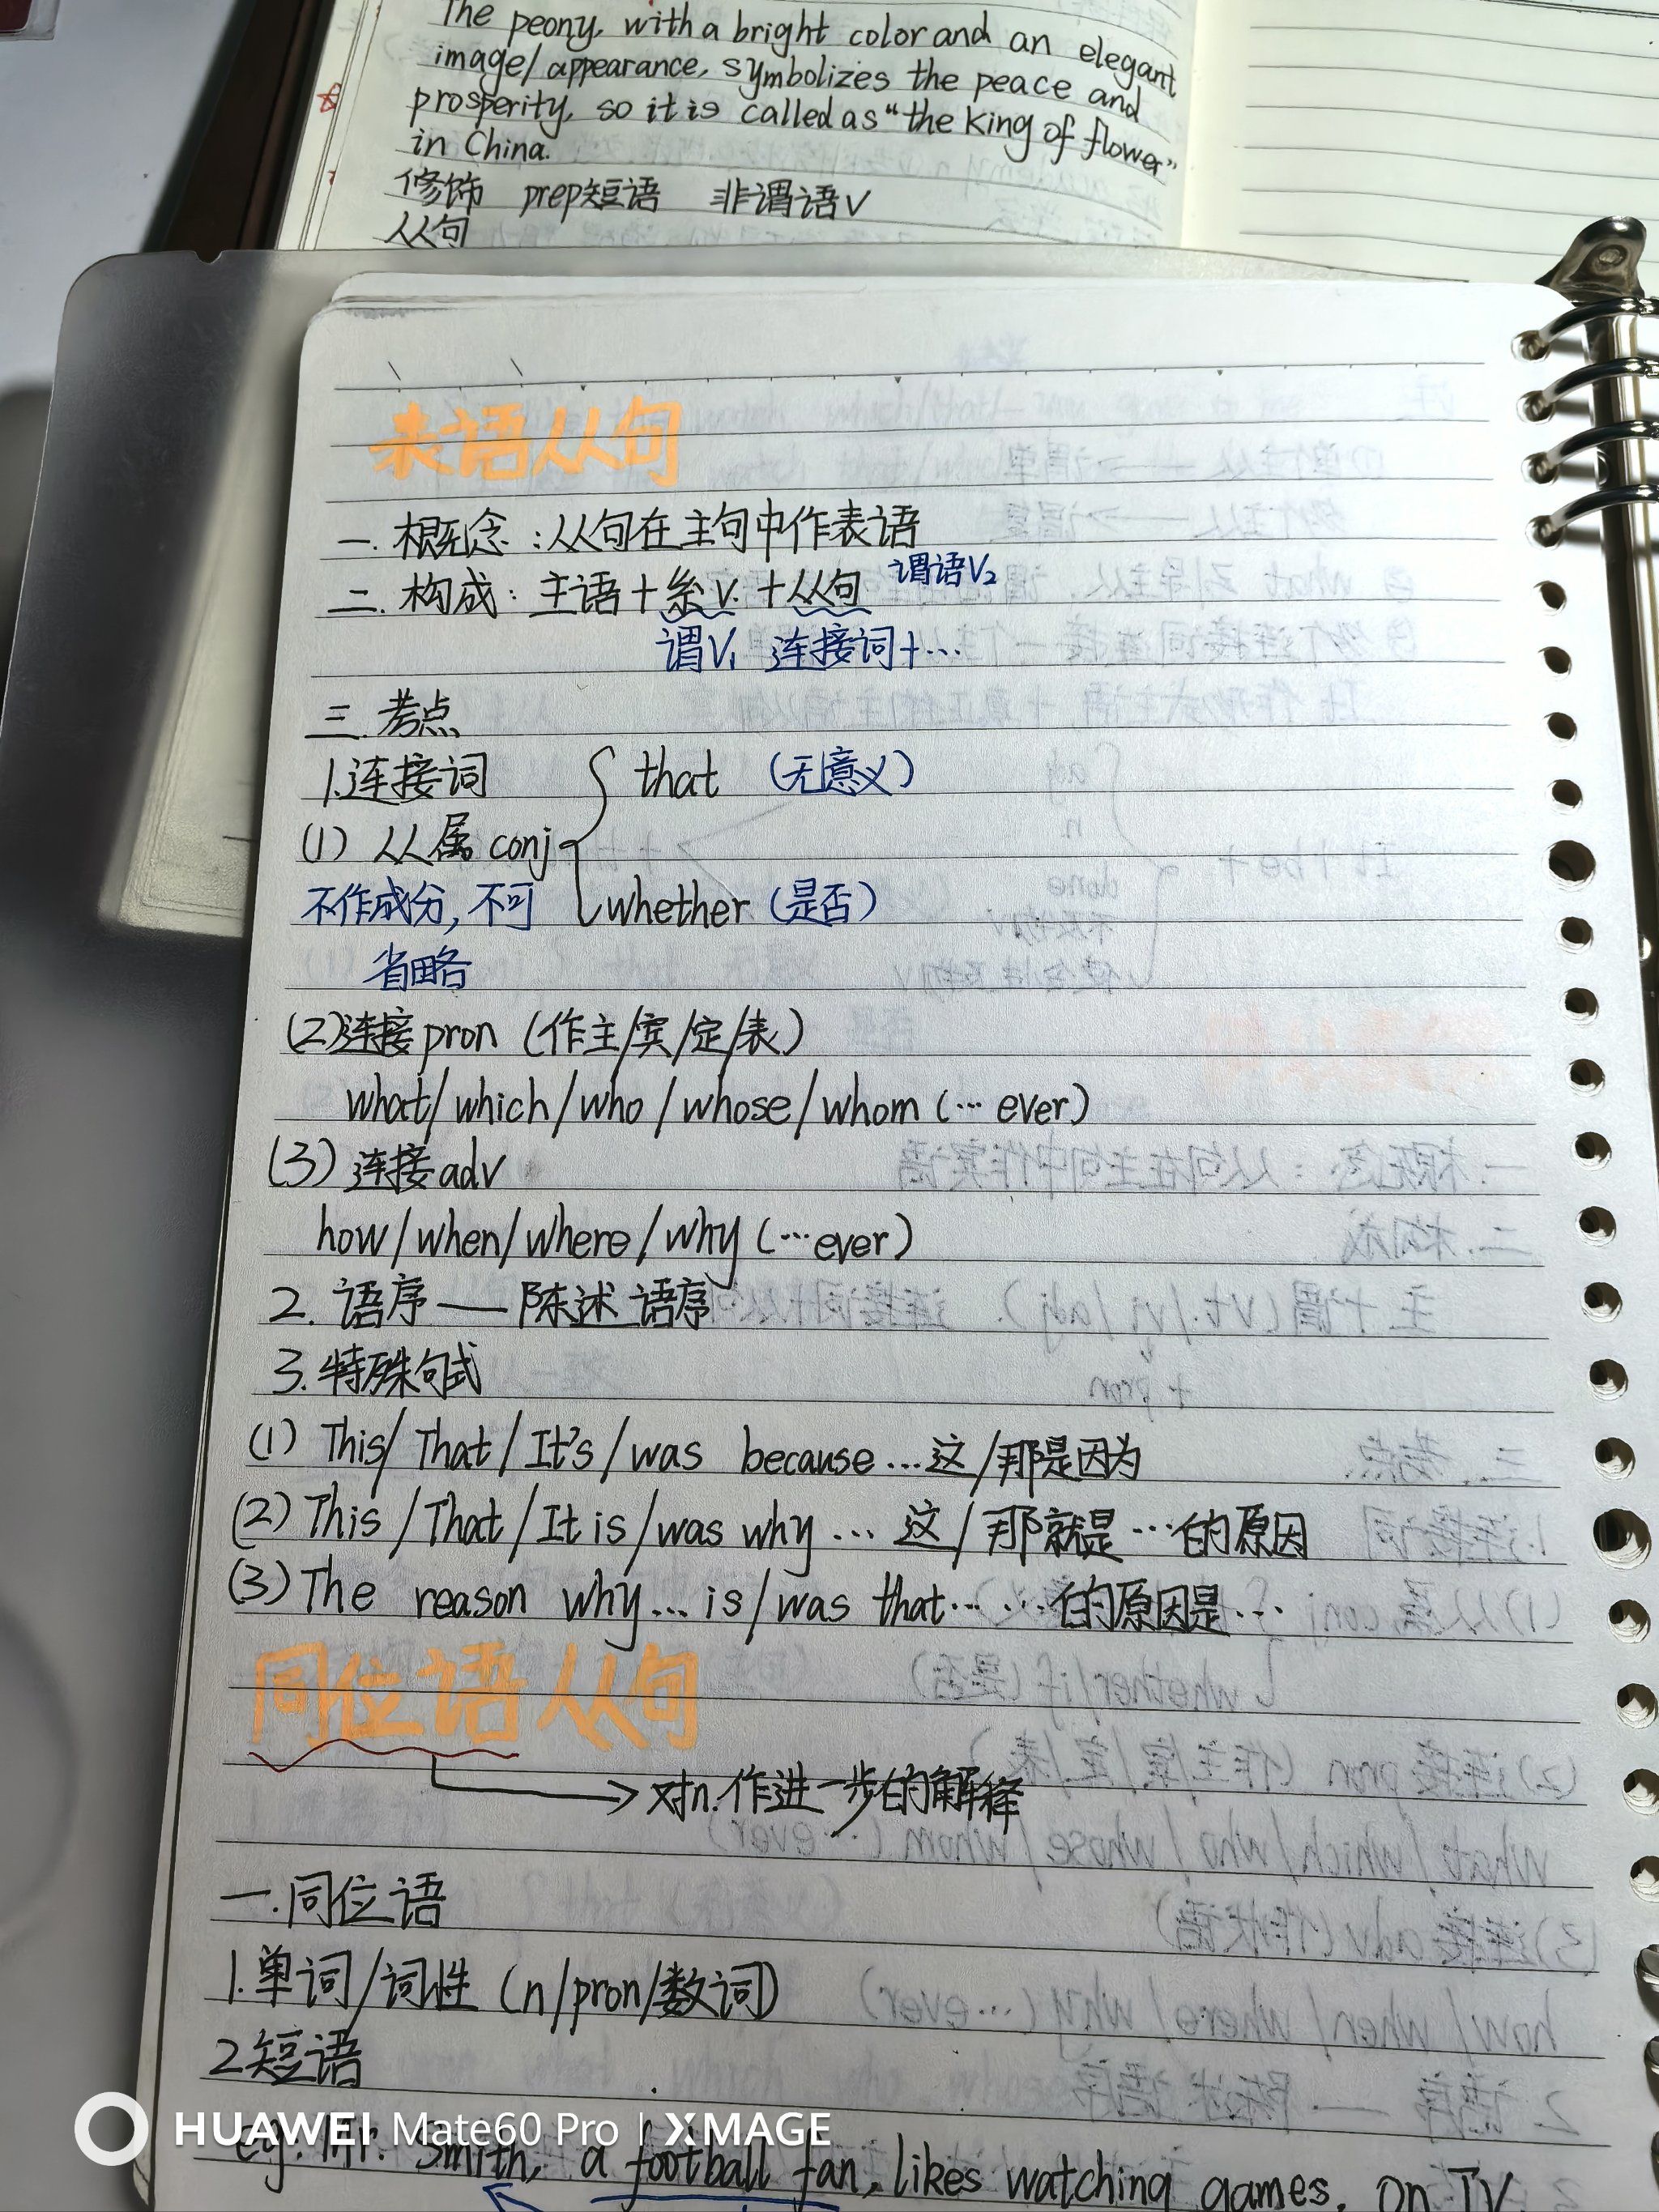 The peony, with a bright color and an elegant
image/appearance, symbolizes the peace and
prosperity, so it is called as "the king of flower"
in China.
修饰 prep短语 非谓语V
从句
表语从句
一. 概念:从句在主句中作表语
二. 构成: 主语+系V.+从句 谓语V2
谓V1 连接词+…
三.考点
1.连接词 that (无意义)
(1) 从属conj
不作成分,不可 whether (是否)
省略
(2)连接pron (作主/宾/定/表)
what/which/who/whose/whom (…ever)
(3) 连接adv
how/when/where/why (…ever)
2. 语序——陈述语序
3.特殊句式
(1) This/That/It's/was because…这/那是因为
(2) This/That/It is/was why… 这/那就是…的原因
(3) The reason why… is/was that… …的原因是…
同位语从句
对n.作进一步的解释
一.同位语
1.单词/词性 (n/pron/数词)
2短语
HUAWEI Mate60 Pro | XMAGE
eg: Mr. Smith, a football fan, likes watching games. on TV